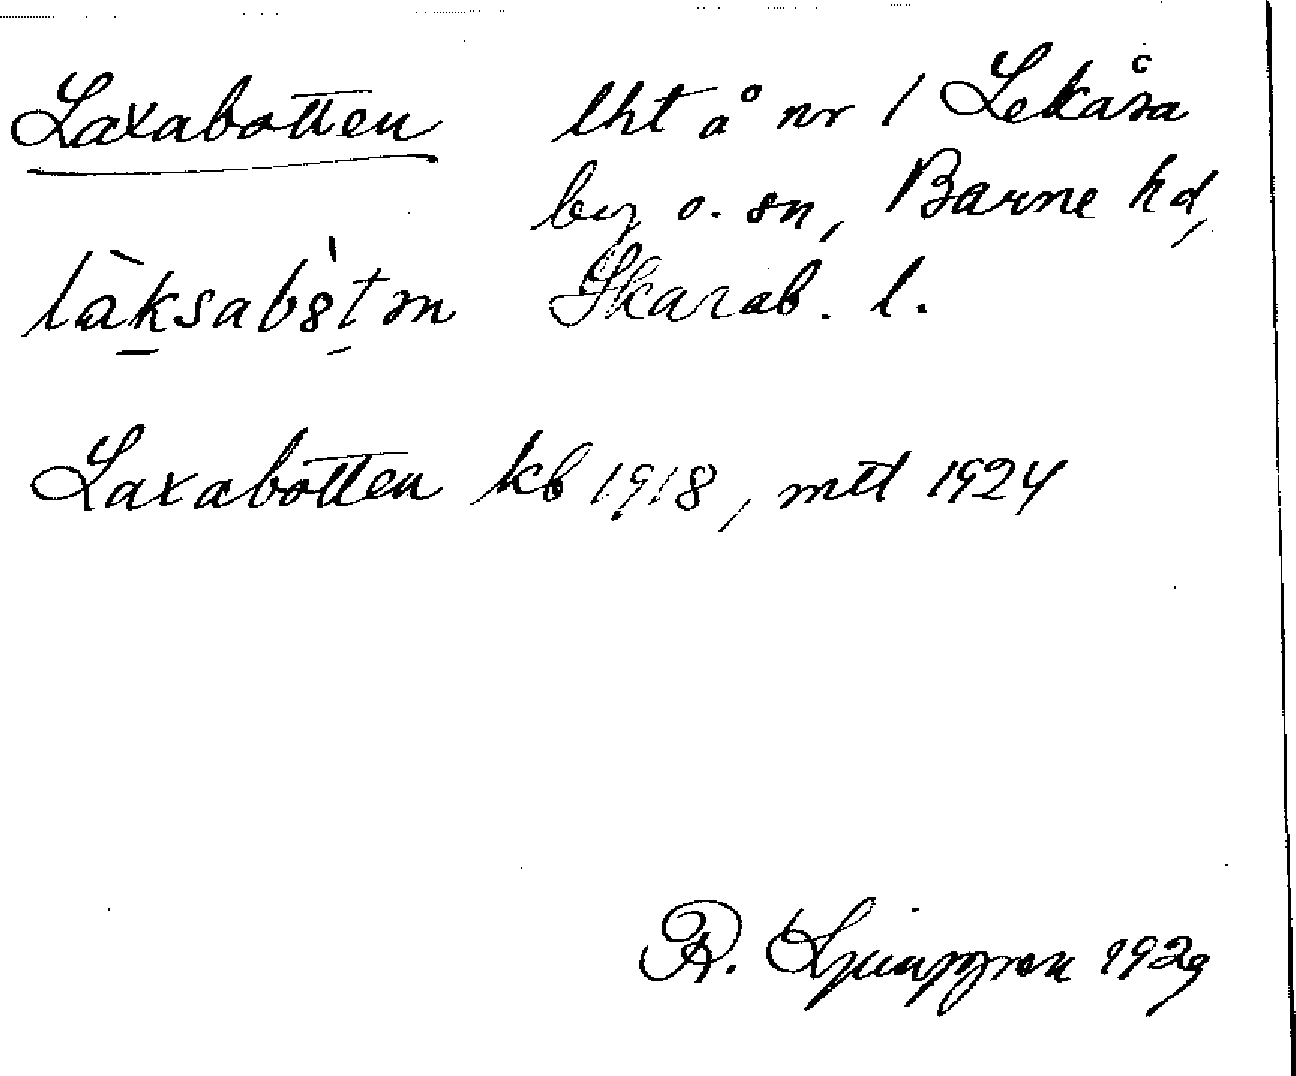 Laxabotten lht å nr 1 Lekåsa
by o. sn, Barne hd,
làksabòtn Skarab. l.
Laxabotten kb 1918, mtl 1924
R. Ljunggren 1929